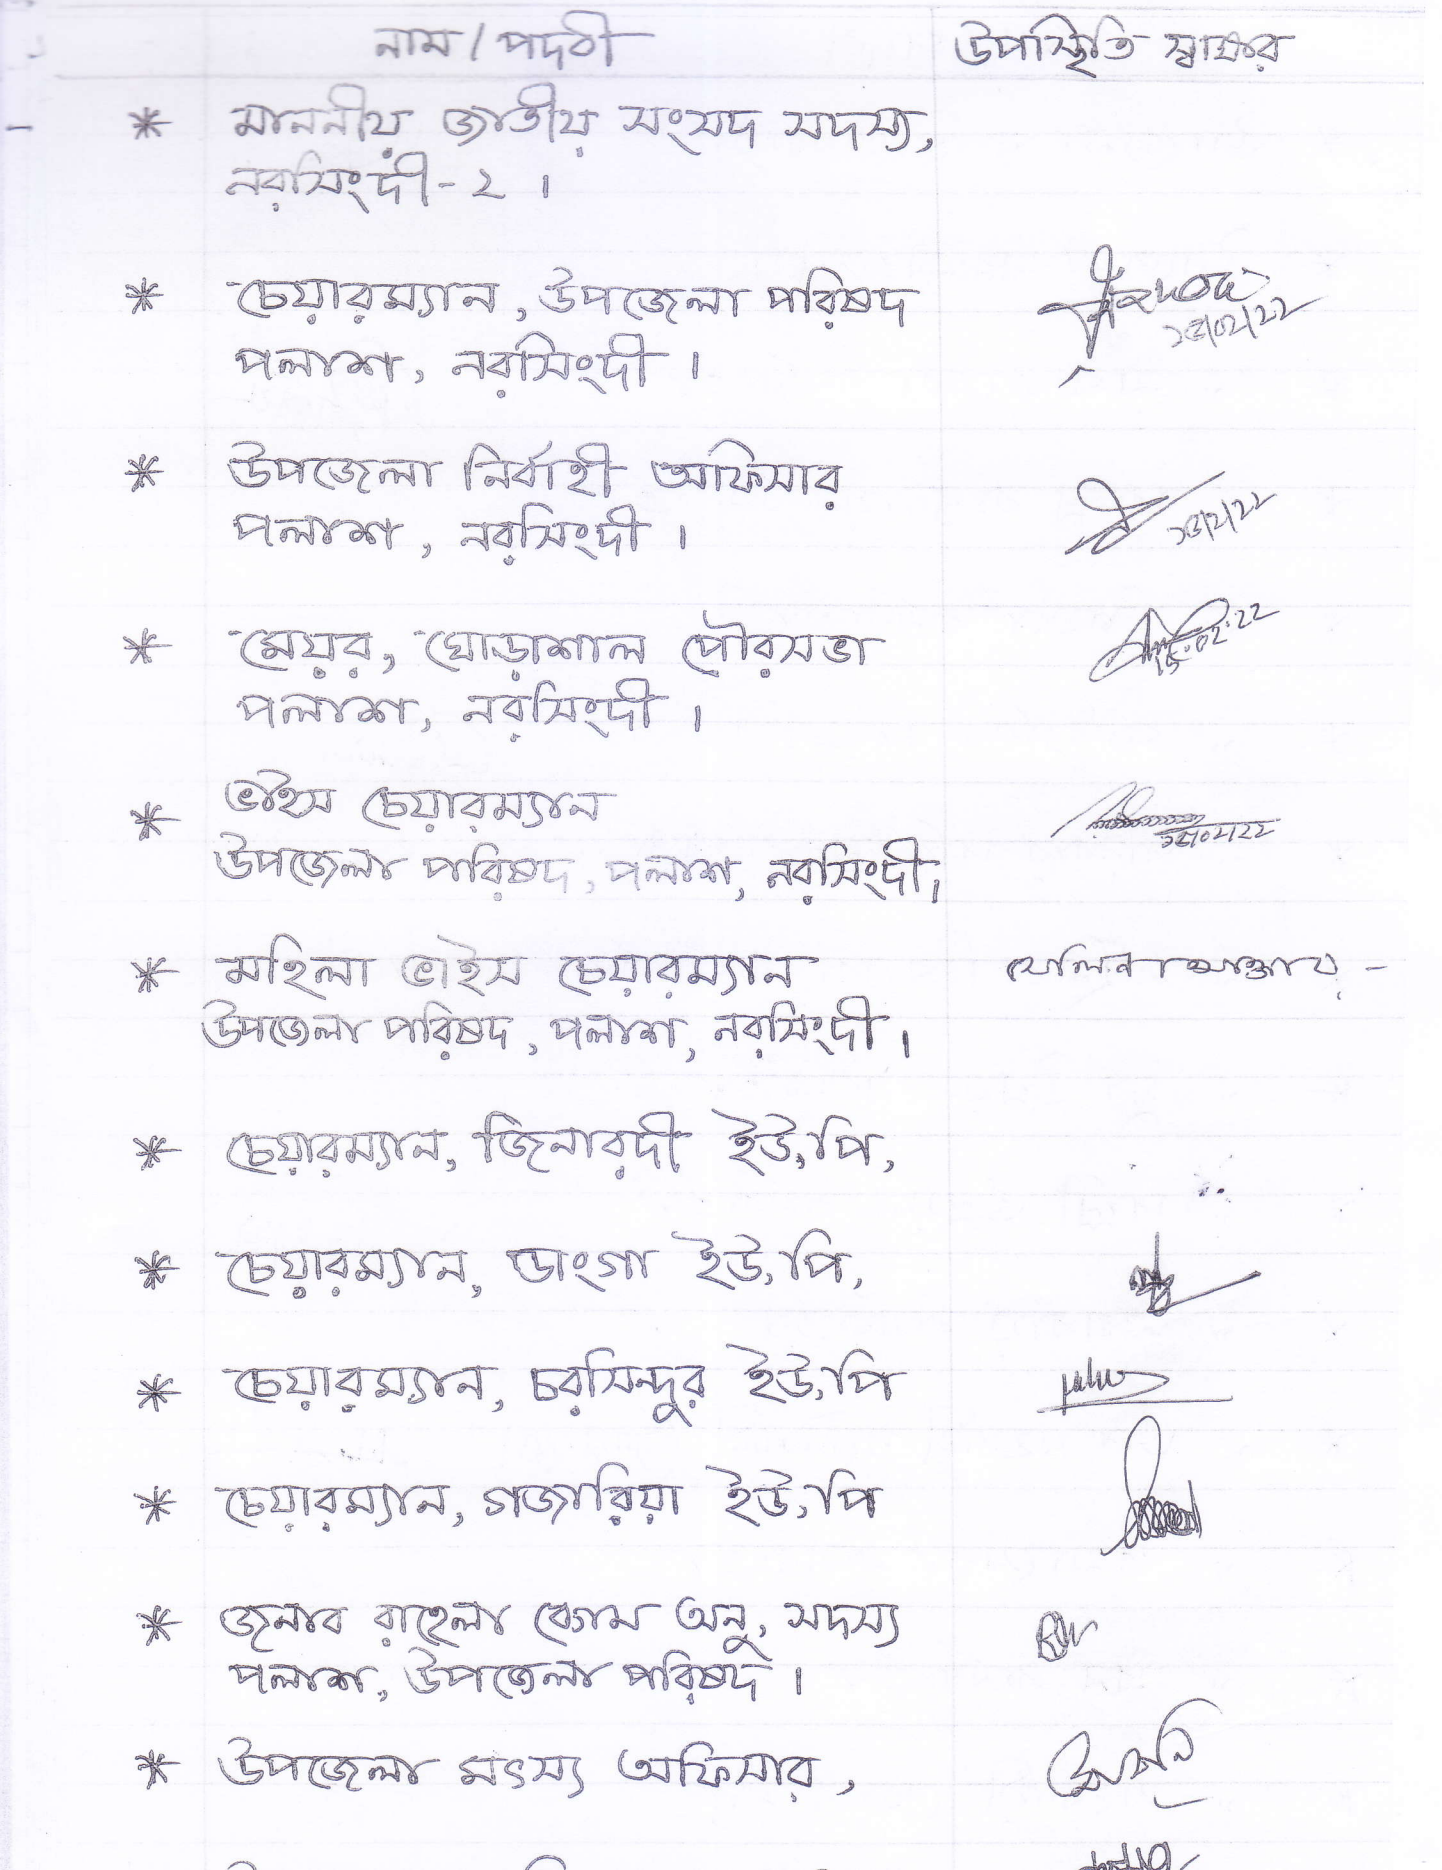 নাম / পদবী
উপস্থিতি স্বাক্ষর
* মাননীয় জাতীয় সংসদ সদস্য,
নরসিংদী - ২ ।
* চেয়ারম্যান, উপজেলা পরিষদ
পলাশ, নরসিংদী ।
১৫/০২/২২
* উপজেলা নির্বাহী অফিসার
পলাশ, নরসিংদী ।
১৫/২/২২
* মেয়র, ঘোড়াশাল পৌরসভা
15.02.22
পলাশ, নরসিংদী ।
* ভাইস চেয়ারম্যান
১৫/০২/২২
উপজেলা পরিষদ, পলাশ, নরসিংদী।
* মহিলা ভাইস চেয়ারম্যান
উপজেলা পরিষদ, পলাশ, নরসিংদী ।
* চেয়ারম্যান, জিনারদী ইউ,পি,
* চেয়ারম্যান, ডাংগা ইউ,পি,
* চেয়ারম্যান, চরসিন্দুর ইউ,পি
* চেয়ারম্যান, গজারিয়া ইউ,পি
* জনাব রাহেলা বেগম অনু, সদস্য
পলাশ, উপজেলা পরিষদ ।
* উপজেলা মৎস্য অফিসার,